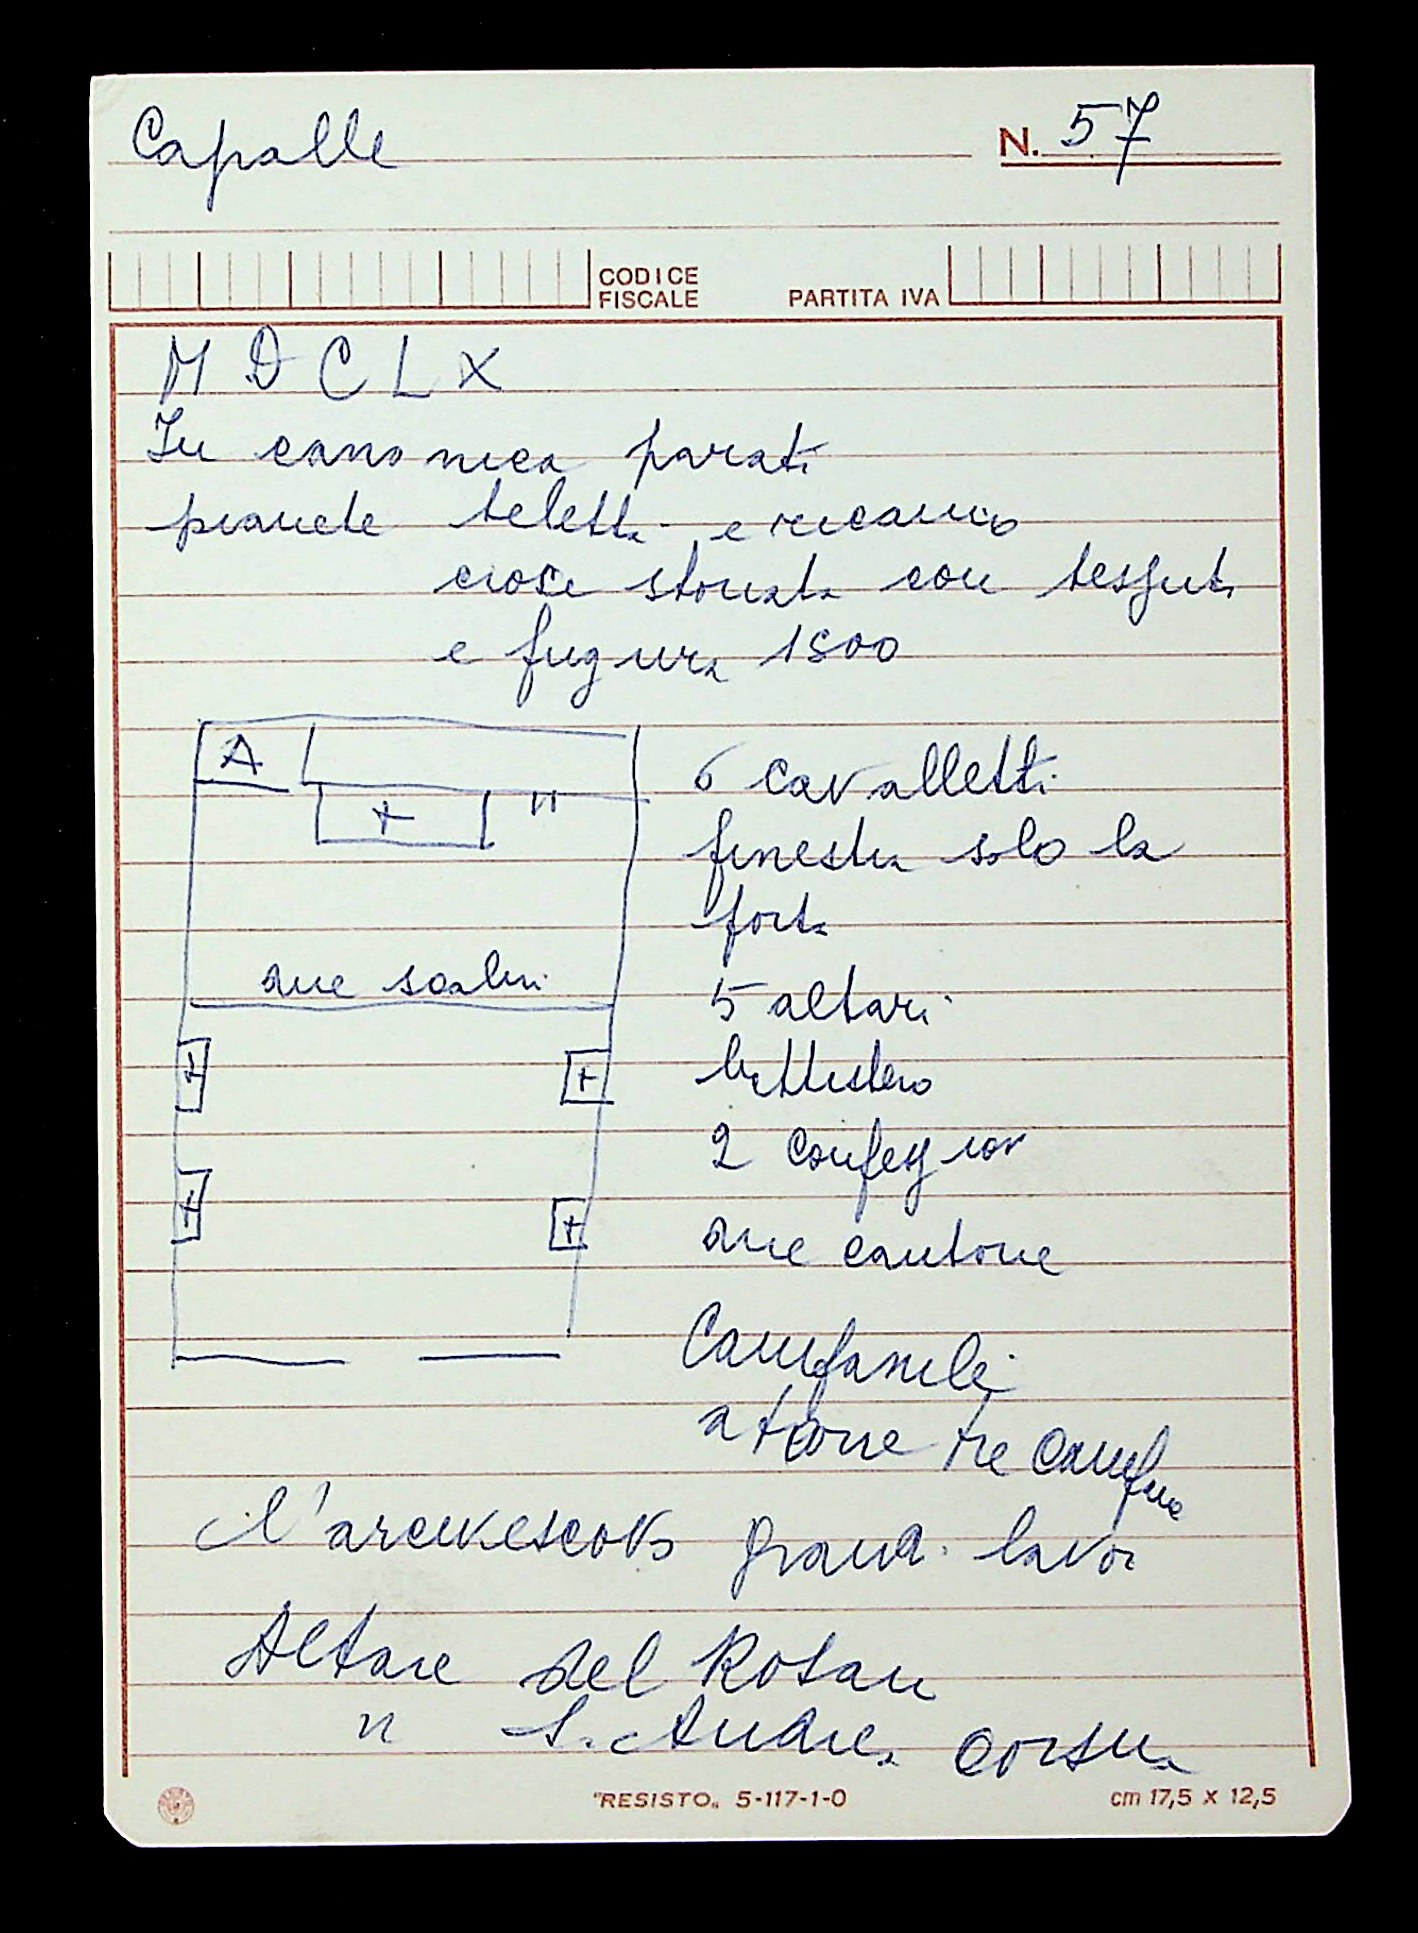 Capalle
N. 57
CODICE FISCALE
PARTITA IVA
M D C L X
In canonica parati
pianete teletta e ricamo
croce stonata con tessuti
e figura 1800
A
+ "
due scalini
+ +
+ +
6 cavalletti
finestra solo la
porta
5 altari
battistero
2 confession
due cantorie
Campanile
a torre tre campane
l'arcivescovo grand. lavor
Altare del Rosari
" S. Andrea Corsini
"RESISTO" 5-117-1-0
cm 17,5 x 12,5